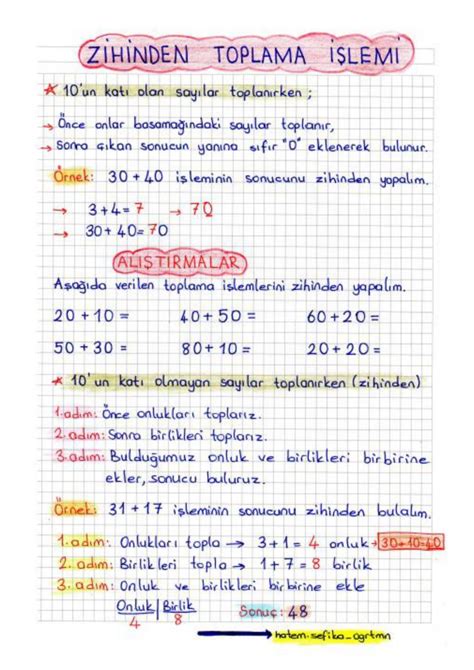 ZİHİNDEN TOPLAMA İŞLEMİ
★ 10'un katı olan sayılar toplanırken ;
→ Önce onlar basamağındaki sayılar toplanır,
→ Sonra çıkan sonucun yanına sıfır "0" eklenerek bulunur.
Örnek: 30 + 40 işleminin sonucunu zihinden yapalım.
→ 3 + 4 = 7 → 70
→ 30 + 40 = 70
ALIŞTIRMALAR
Aşağıda verilen toplama işlemlerini zihinden yapalım.
20 + 10 = 40 + 50 = 60 + 20 =
50 + 30 = 80 + 10 = 20 + 20 =
★ 10'un katı olmayan sayılar toplanırken (zihinden)
1. adım: Önce onlukları toplarız.
2. adım: Sonra birlikleri toplarız.
3. adım: Bulduğumuz onluk ve birlikleri birbirine
ekler, sonucu buluruz.
Örnek: 31 + 17 işleminin sonucunu zihinden bulalım.
1. adım: Onlukları topla → 3 + 1 = 4 onluk → 30+10=40
2. adım: Birlikleri topla → 1 + 7 = 8 birlik
3. adım: Onluk ve birlikleri birbirine ekle
Onluk | Birlik
4 8
Sonuç: 48
→ hatem.sefika_ogrtmn